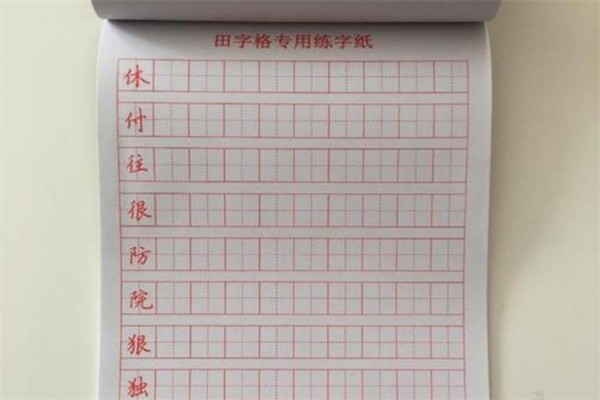 田字格专用练字纸
休
付
往
很
防
院
狠
独